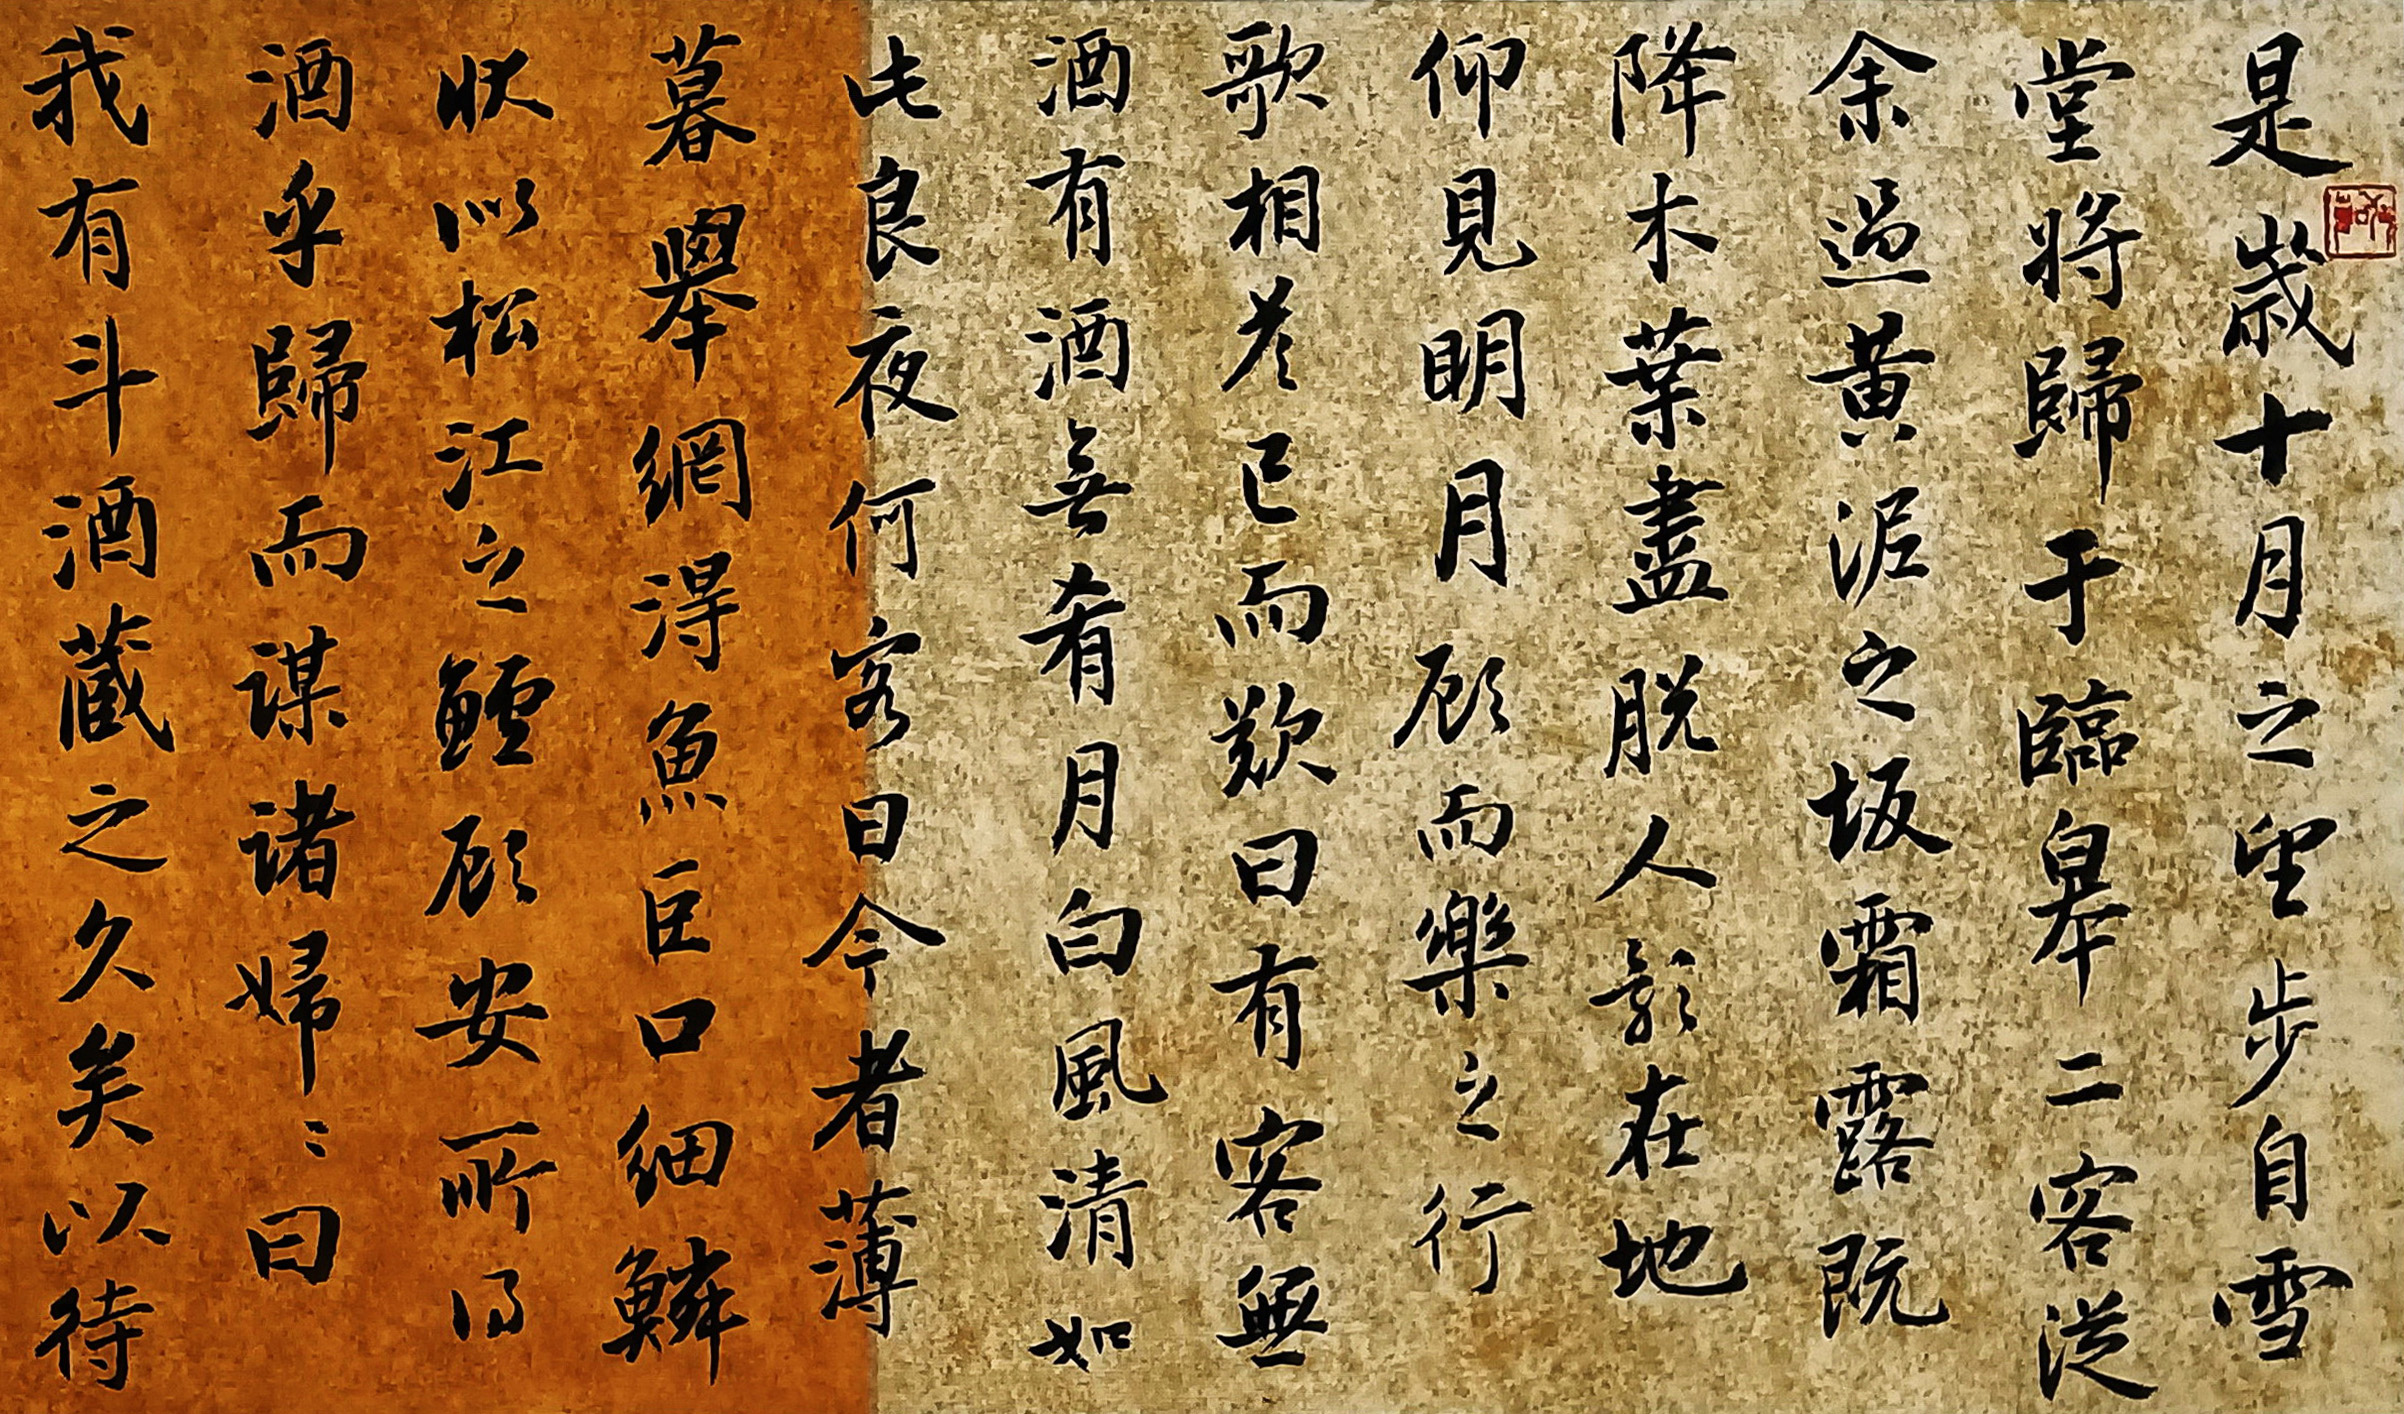 是歲十月之望步自雪
堂將歸于臨皋二客從
余過黃泥之坂霜露既
降木葉盡脫人影在地
仰見明月顧而樂之行
歌相答已而歎曰有客無
酒有酒無肴月白風清如
此良夜何客曰今者薄
暮舉網得魚巨口細鱗
狀似松江之鱸顧安所得
酒乎歸而謀諸婦〻曰
我有斗酒藏之久矣以待